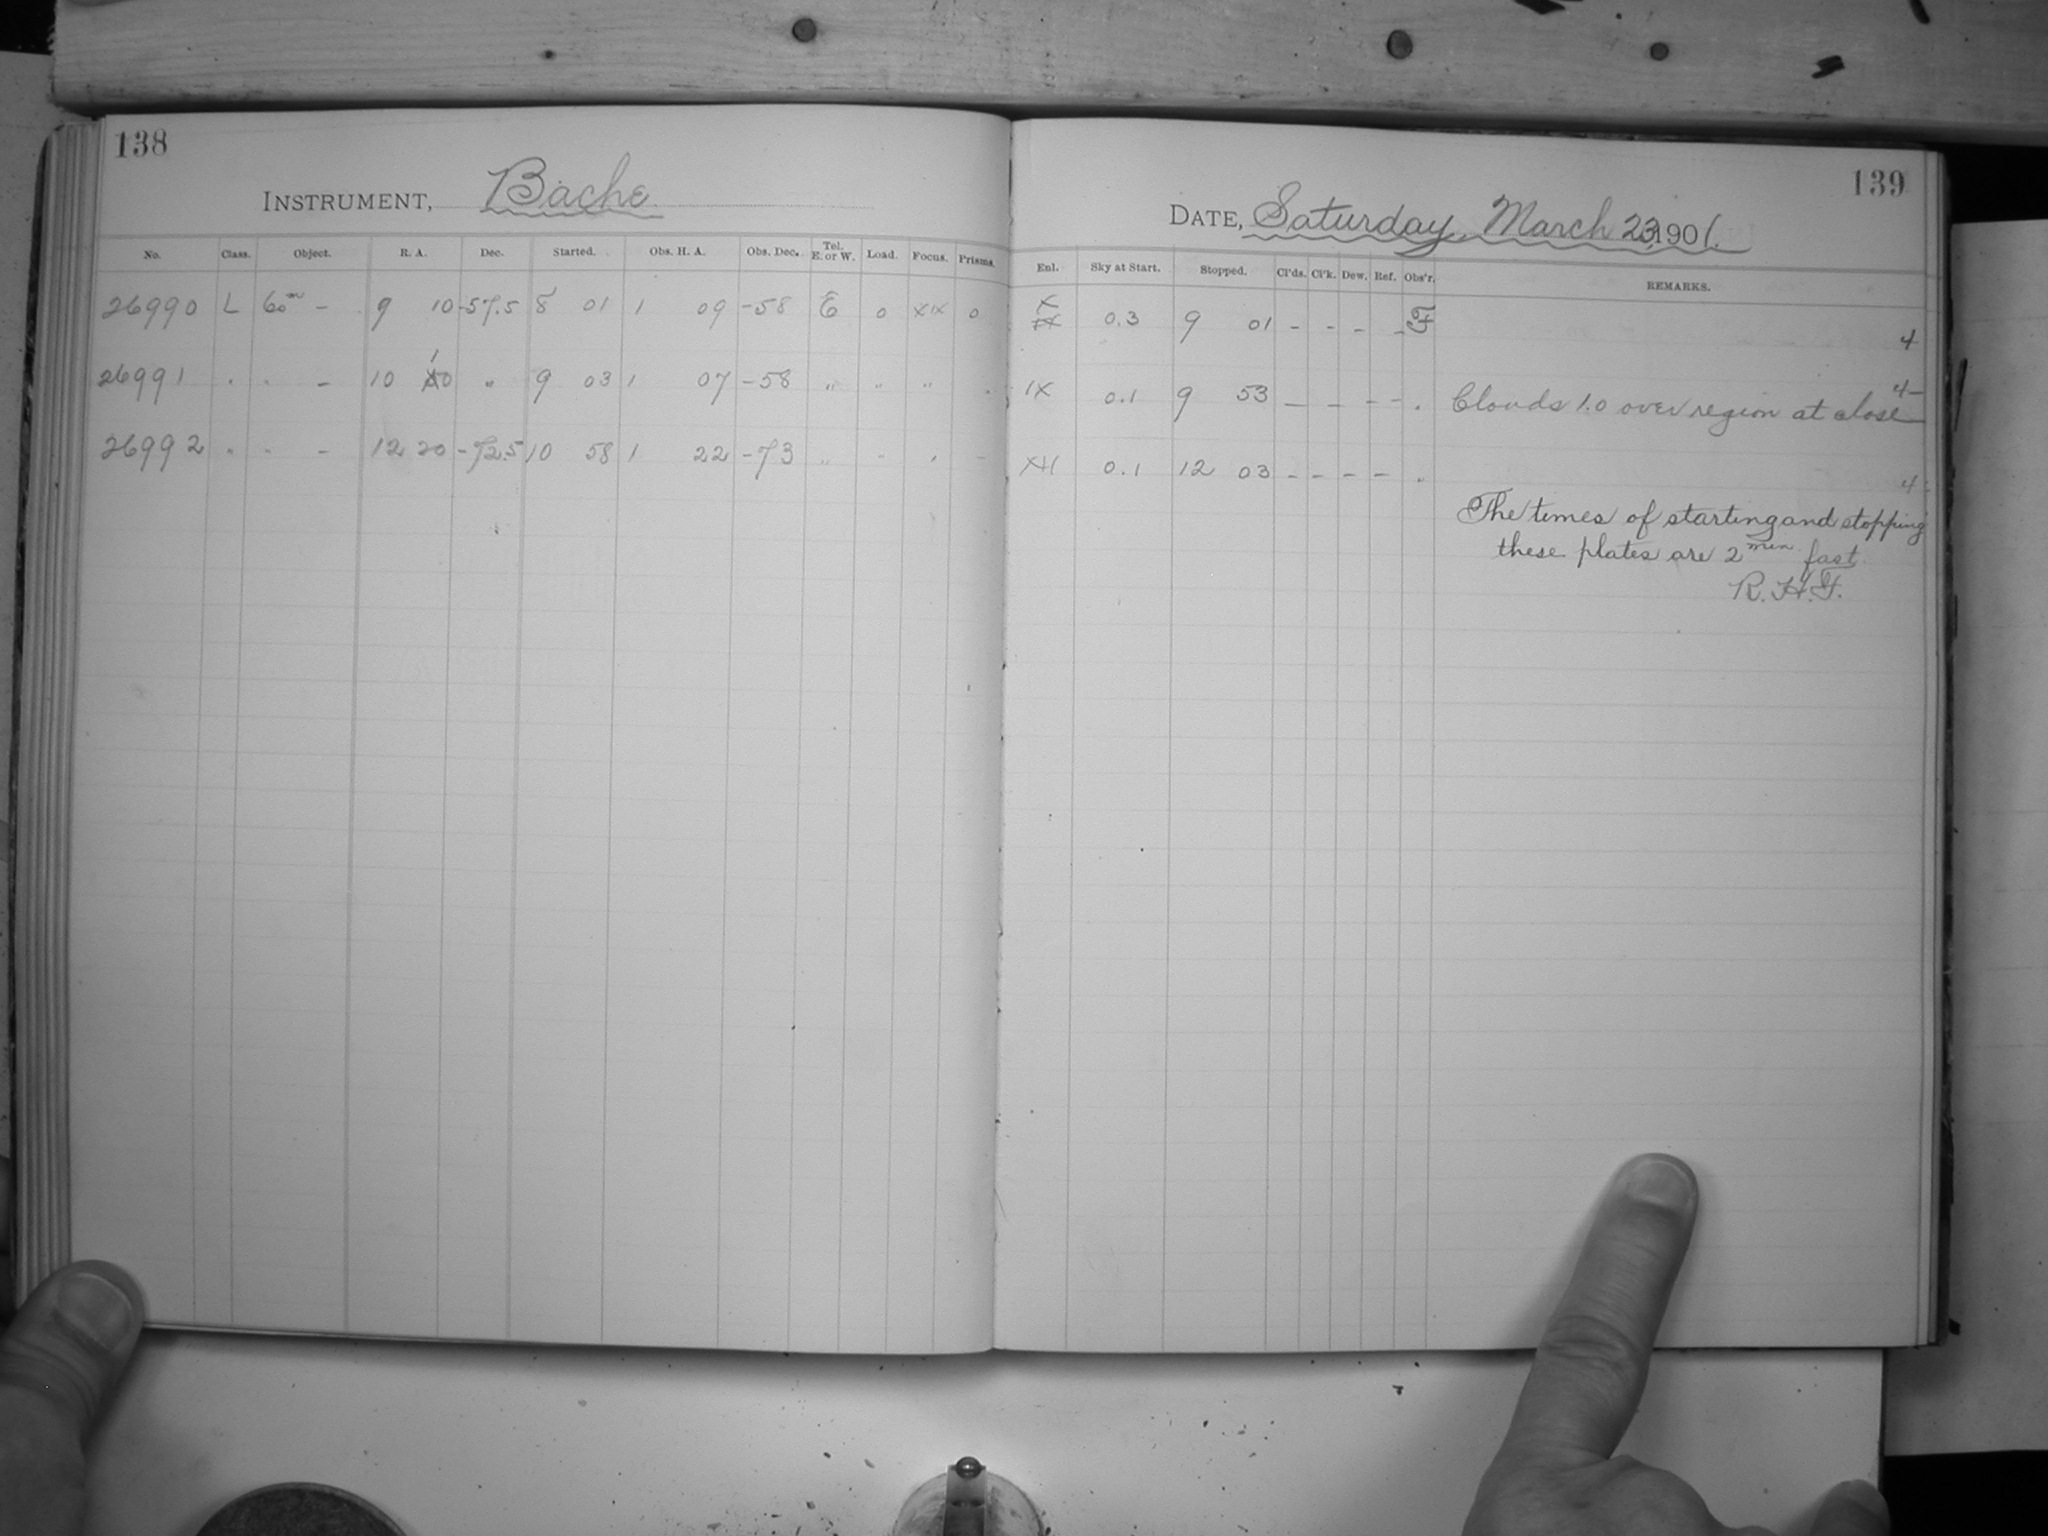 138
INSTRUMENT, Bache
No. Class. Object. R. A. Dec. Started. Obs. H. A. Obs. Dec. Tel. E. or W. Load. Focus. Prisms.
26990 L 60m – 9 10 -57.5 8 01 1 09 -58 E 0 XIX 0
26991 . . – 10 10 " 9 03 1 07 -58 " " " .
26992 " - – 12 20 -72.5 10 58 1 22 -73 " - , -
139
DATE, Saturday, March 23, 1901.
Enl. Sky at Start. Stopped. Cl'ds. Cl'k. Dew. Ref. Obs'r. REMARKS.
X 0.3 9 01 - - - - 4
IX 0.1 9 53 – – - - . Clouds 1.0 over region at close 4
XII 0.1 12 03 - - - - " 4
The times of starting and stopping
these plates are 2 min. fast.
R. H. F.